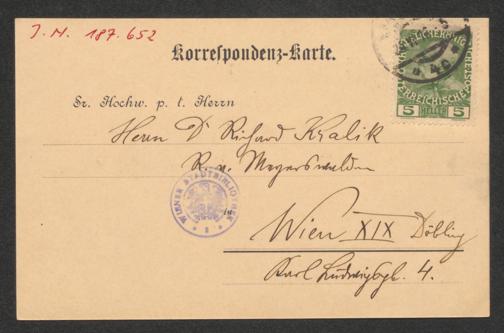 J. N. 187.652
Korrespondenz-Karte.
Sr. Hochw. p. t. Herrn
Herrn Dr Richard Kralik
R. v. Meyerswalden
WIENER STADTBIBLIOTHEK
Wien XIX Döbling
Karl Ludwigstr. 4.
5 HELLER 5